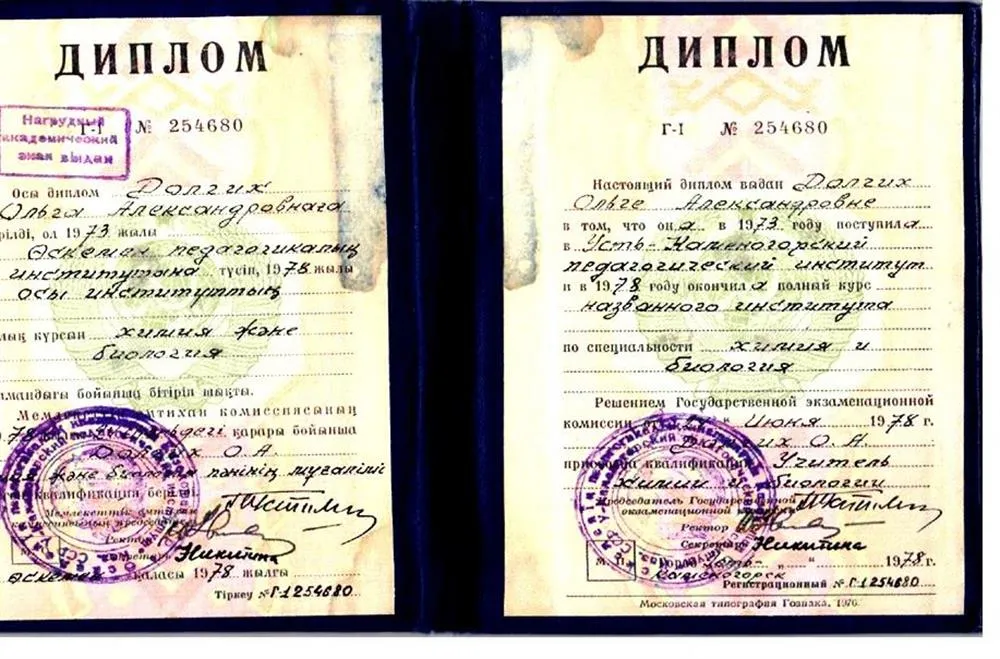 ДИПЛОМ
Нагрудный
академический
знак выдан
Г-I № 254680
Осы диплом Долгих
Ольга Александровнаға
рілді, ол 1973 жылы
Өскемен педагогикалық
институтына түсіп, 1978 жылы
осы институттың
лық курсын химия және
биология
мандығы бойынша бітіріп шықты.
комиссиясының
қарары бойынша
Долгих О. А.
және биология пәнінің мұғалімі
квалификация
Никитина
Өскемен қаласы 1978 жылғы
Тіркеу № Г-I 254680
ДИПЛОМ
Г-I № 254680
Настоящий диплом выдан Долгих
Ольге Александровне
в том, что она в 1973 году поступила
в Усть-Каменогорский
педагогический институт
и в 1978 году окончила полный курс
названного института
по специальности химия и
биология
Решением Государственной экзаменационной
комиссии от Июня 1978 г.
Долгих О. А.
присвоена квалификация Учитель
химии и биологии
Председатель Государственной
экзаменационной
Ректор
Секретарь Никитина
М. П. Город Усть- 1978 г.
Каменогорск
Регистрационный № Г-I 254680
Московская типография Гознака, 1976.